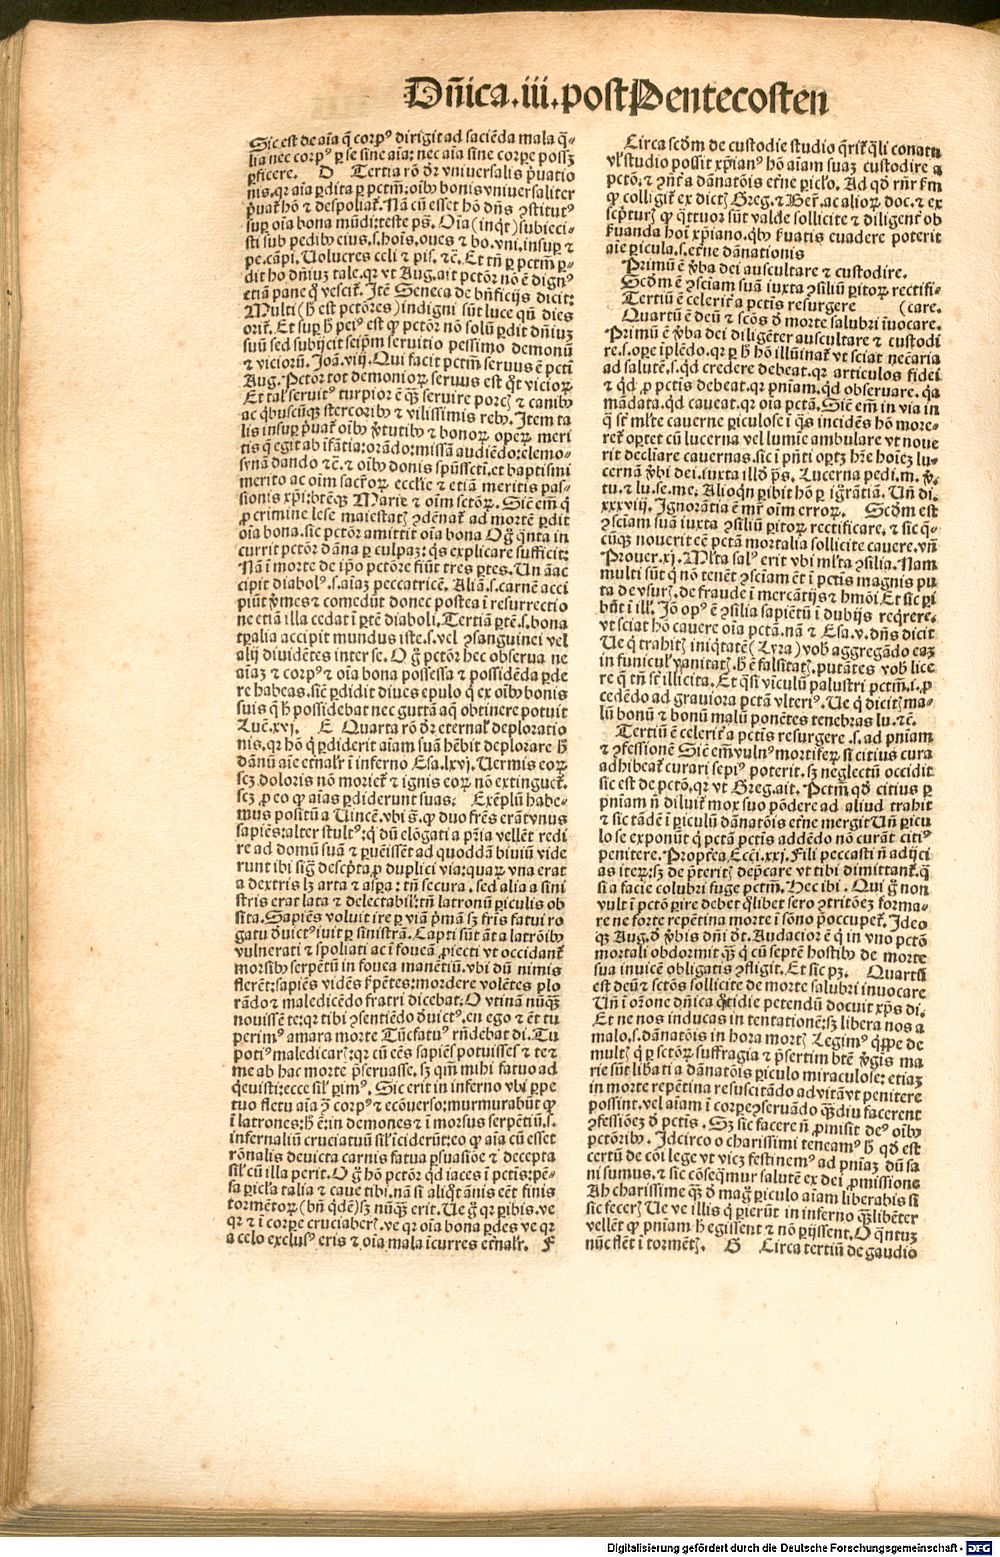 Dn̄ica.iii.post Pentecosten
Sic est de aīa q̄ corpꝰ dirigit ad faciēda mala q̄-
lia nec corpꝰ ꝑ se sine aīa: nec aīa sine corpe possꝫ
ꝑficere. D Tertia rō dr̄ vniuersalis p̄uatio
nis.qꝛ aīa ꝑdita ꝑ pctm̄: oībꝫ bonis vniuersaliter
p̄uat̄ hō ⁊ despoliat̄. Nā cū esset hō dn̄s ꝯstitutꝰ
suꝑ oīa bona mūdi: teste ps̄. Oīa (inqt̄) subieci-
sti sub pedibꝫ eius.s.hoīs, oues ⁊ bo. vni. insuꝑ ⁊
pe. cāpi. Uolucres celi ⁊ pis. ⁊c̄. Et tn̄ ꝑ pctm̄ ꝑ-
dit hō dn̄iuꝫ tale. qꝛ vt Aug. ait pctōr nō ē dignꝰ
etiā pane q̊ vescit̄. Itē Seneca de bn̄ficijs dicit:
Multi (h̄ est pctōres) indigni sūt luce qū dies
orit̄. Et suꝑ h̄ peiꝰ est ꝙ pctōr nō solū ꝑdit dn̄iuꝫ
suū sed subijcit seip̄m seruitio pessimo demonū
⁊ vicioꝛū. Joā. viij. Qui facit pctm̄ seruus ē pcti
Aug. Pctōr tot demonioꝝ seruus est q̊t vicioꝝ.
Et tal̄ seruitꝰ turpior ē qꝫ seruire porcꝭ ⁊ canibꝫ
ac q̄buscūqꝫ stercoribꝫ ⁊ vilissimis rebꝫ. Item ta
lis insuꝑ p̄uat̄ oībꝫ v̄tutibꝫ ⁊ bonoꝝ opeꝝ meri
tis q̄ egit ab īfātia: orādo: missā audiēdo: elemo-
synā dando ⁊c̄. ⁊ oībꝫ donis sp̄ussctī. et baptismi
merito ac oīm sacroꝝ ecclīe ⁊ etiā meritis pas-
sionis xp̄i: btēqꝫ Marie ⁊ oīm sctōꝝ. Sic̄ em̄ q̄
ꝓ crimine lese maiestatꝭ ꝯdēnat̄ ad mortē ꝑdit
oīa bona. sic pctōr amittit oīa bona O g̊ q̄nta in
currit pctōr dāna ꝑ culpaꝫ: q̄s explicare sufficit:
Nā ī morte de ip̄o pctōre fiūt tres ꝑtes. Un̄ āac
cipit diabolꝰ .s. aīaꝫ peccatricē. Aliā .s. carnē acci
piūt v̄mes ⁊ comedūt donec postea ī resurrectio
ne etiā illa cedat ī ꝑtē diaboli. Tertiā ꝑtē .s. bona
tꝑalia accipit mundus iste .s. vel ꝯsanguinei vel
alij diuidētes inter se. O g̊ pctōr hec obserua ne
aīaꝫ ⁊ corpꝰ ⁊ oīa bona possessa ⁊ possidēda ꝑde
re habeas. sic̄ ꝑdidit diues epulo q̄ ex oībꝫ bonis
suis q̄ h̄ possidebat nec guttā aq̄ obtinere potuit
Luc̄. xvj. E Quarta rō dr̄ eternal̄ deploratio
nis. qꝛ hō q̄ ꝑdiderit aīam suā hēbit deplorare h̄
dānū aīe et̄nalr̄ ī inferno Esa. lxvj. Uermis eoꝝ
scꝫ doloris nō moriet̄ ⁊ ignis eoꝝ nō extinguet̄.
scꝫ ꝓ eo ꝙ aīas ꝑdiderunt suas. Exēplū habe-
mus positū a Uincē. vbi s̄. ꝙ duo fr̄es erāt vnus
sapiēs: alter stultꝰ: q̄ dū elōgati a pr̄ia vellēt redi
re ad domū suā ⁊ ꝑuēissēt ad quoddā biuiū vide
runt ibi sig̊ descp̄ta, ꝙ duplici via: quaꝝ vna erat
a dextris lꝫ arta ⁊ aspa: tn̄ secura. sed alia a sini
stris erat lata ⁊ delectabil̄: tn̄ latronū ꝑiculis ob
sita. Sapiēs voluit ire ꝑ viā p̄mā sꝫ fr̄is fatui ro
gatu d̄uictꝰ iuit ꝑ sinistrā. Capti sūt āt a latrōibꝫ
vulnerati ⁊ spoliati ac ī foueā ꝓiecti vt occidant̄
morsibꝫ serpētū in fouea manētiū. vbi dū nimis
flerēt: sapiēs vidēs ẜpētes: mordere volētes plo
rādo ⁊ maledicēdo fratri dicebat: O vtinā nūqꝫ
nouissē te: qꝛ tibi ꝯsentiēdo d̄uictꝰ. en ego ⁊ ēt tu
perimꝰ amara morte Tūc fatuꝰ rn̄debat di. Tu
potiꝰ maledicarꝭ: qꝛ cū eēs sapiēs potuisses ⁊ te ⁊
me ab hac morte p̄seruasse. sꝫ qm̄ mihi fatuo ad
q̄euisti: ecce sil̄ ꝑimꝰ. Sic erit in inferno vbi ꝑpe
tuo fletu aīa ꝯ̄ corpꝰ ⁊ ecōuerso: murmurabūt ꝙ
ī latrones: h̄ ē: in demones ⁊ ī morsus serpētiū .s.
infernaliū cruciatuū sil̄ īciderūt: eo ꝙ aīa cū esset
rōnalis deuicta carnis fatua ꝑsuasiōe ⁊ decepta
sil̄ cū illa perit. O g̊ hō pctōr qd̄ iaces ī pctīs: pē-
sa ꝑicl̄a talia ⁊ caue tibi. nā si aliq̊t ānis eēt finis
tormētoꝝ (bn̄ q̄dē) sꝫ nūqꝫ erit. Ue g̊ qꝛ ꝑibis. ve
qꝛ ⁊ ī corpe cruciaberꝭ. ve qꝛ oīa bona ꝑdes ve qꝛ
a celo exclusꝰ eris ⁊ oīa mala īcurres et̄nalr̄. F
Circa scd̄m de custodie studio q̄rit̄ q̄li conatu
vl̄ studio possit xp̄ianꝰ hō aīam suaꝫ custodire a
pctō. ⁊ ꝯn̄t̄ a dānatōis et̄ne ꝑicl̄o. Ad qd̄ rn̄r ẜm
ꝙ colligit̄ ex dictꝭ Greg. ⁊ Her̄. ac alioꝝ doc. ⁊ ex
scpturꝭ ꝙ q̄ttuor sūt valde sollicite ⁊ diligent̄ ob
ẜuanda hoī xp̄iano. q̄bꝫ ẜuatis euadere poterit
aīe ꝑicula .s. et̄ne dānationis
Primū ē v̄ba dei auscultare ⁊ custodire.
Scd̄m ē ꝯsciam suā iuxta ꝯsiliū ꝑitoꝝ rectifi-
Tertiū ē celerit̄ a pctīs resurgere (care.
Quartū ē deū ⁊ scōs d̄ morte salubri īuocare.
Primū ē v̄ba dei diligēter auscultare ⁊ custodi
re .s. oꝑe īplēdo. qꝛ ꝑ h̄ hō illūinat̄ vt sciat necāria
ad salutē .s. qd̄ credere debeat. qꝛ articulos fidei
⁊ qd̄ ꝓ pctis debeat. qꝛ pn̄iam. qd̄ obseruare. qꝛ
mādata. qd̄ caueat. qꝛ oīa pctā. Sic̄ em̄ in via in
q̄ st̄ ml̄te cauerne ꝑiculose ī q̄s incidēs hō more-
ret̄ oꝑtet cū lucerna vel lumīe ambulare vt noue
rit declīare cauernas. sic ī pn̄ti oꝑtꝫ hr̄e hoīeꝫ lu-
cernā v̄bi dei. iuxta illd̄ ps̄. Lucerna pedi. m. v̄.
tu. ⁊ lu. se. me. Alioqn̄ ꝑibit hō ꝑ igrātiā. Un̄ di.
xxxviij. Ignorātia ē mr̄ oīm erroꝝ. Scd̄m est
ꝯsciam suā iuxta ꝯsiliū ꝑitoꝝ rectificare. ⁊ sic q̄-
cūqꝫ nouerit eē pctā mortalia sollicite cauere. vn̄
Prouer. xj. Ml̄ta salꝰ erit vbi ml̄ta ꝯsilia. Nam
multi sūt q̄ nō tenēt ꝯsciam ēt ī pctīs magnis pu
ta de vsurꝭ, de fraude ī mercātijs ⁊ hmōi Et sic ꝑi
būt ī ill̄. Jō opꝰ ē ꝯsilia sapiētū ī dubijs reqrere.
vt sciat hō cauere oīa pctā. nā ⁊ Esa. v. dn̄s dicit
Ue q̄ trahitꝭ iniq̄tatē (Lyra) vobꝭ aggregādo eaꝫ
in funicul̄ vanitatꝭ. h̄ ē falsitatꝭ. putātes vobꝭ lice
re q̄ tn̄ st̄ illicita. Et qsi vīculū palustri pctm̄ .i. ꝓ
cedēdo ad grauiora pctā vlteriꝰ. Ue q̄ dicitꝭ ma-
lū bonū ⁊ bonū malū ponētes tenebras lu. ⁊c̄.
Tertiū ē celerit̄ a pctīs resurgere .s. ad pn̄iam
⁊ ꝯfessionē Sic̄ em̄ vulnꝰ mortifeꝝ si citius cura
adhibeat̄ curari sepiꝰ poterit. sꝫ neglectū occidit
sic est de pctō. qꝛ vt Greg. ait. Pctm̄ qd̄ citius ꝑ
pn̄iam n̄ diluit̄ mox suo pōdere ad aliud trahit
⁊ sic tādē ī ꝑiculū dānatōis et̄ne mergit Un̄ ꝑicu
lo se exponūt q̄ pctā pctīs addēdo nō curāt citiꝰ
penitere. Propt̄ea Ecc̄i. xxj. Fili peccasti n̄ adijci
as iteꝝ: sꝫ de p̄teritꝭ dep̄care vt tibi dimittant̄. q̄
si a facie colubri fuge pctm̄. Hec ibi. Qui g̊ non
vult ī pctō ꝑire debet q̄libet sero ꝯtritōeꝫ forma-
re ne forte repētina morte ī sōno p̄occupet̄. Ideo
qꝫ Aug. d̄ v̄bis dn̄i d̄t. Audacior ē q̄ in vno pctō
mortali obdormit qꝫ q̄ cū septē hostibꝫ de morte
sua inuicē obligatis ꝯfligit. Et sic pꝫ. Quartū
est deū ⁊ sctōs sollicite de morte salubri inuocare
Un̄ ī orōne dn̄ica q̊tidie petendū docuit xp̄s di.
Et ne nos inducas in tentationē: sꝫ libera nos a
malo .s. dānatōis in hora mortꝭ Legimꝰ q̄ppe de
multꝭ q̄ ꝑ sctōꝝ suffragia ⁊ p̄sertim btē v̄gis ma
rie sūt libati a dānatōis ꝑiculo miraculose: etiaꝫ
in morte repētina resuscitādo ad vitā vt penitere
possint. vel aīam ī corpe ꝯseruādo qꝫdiu facerent
ꝯfessiōeꝫ d̄ pctīs. Sꝫ sic facere n̄ ꝓmisit deꝰ oībꝫ
pctōribꝫ. Idcirco o charissimi teneamꝰ h̄ qd̄ est
certū de cōi lege vt vicꝫ festinemꝰ ad pn̄iaꝫ dū sa
ni sumus. ⁊ sic cōseqmur salutē ex dei ꝓmissione
Ah charissime qꝫ d̄ mag̊ ꝑiculo aīam liberabis si
sic fecerꝭ Ue ve illis q̄ ꝑierūt in inferno qꝫlibēter
vellēt ꝙ pn̄iam h̄ egissent ⁊ nō ꝑijssent. O q̄ntuꝫ
nūc flēt ī tormētꝭ. G Circa tertiū de gaudio
Digitalisierung gefördert durch die Deutsche Forschungsgemeinschaft - DFG